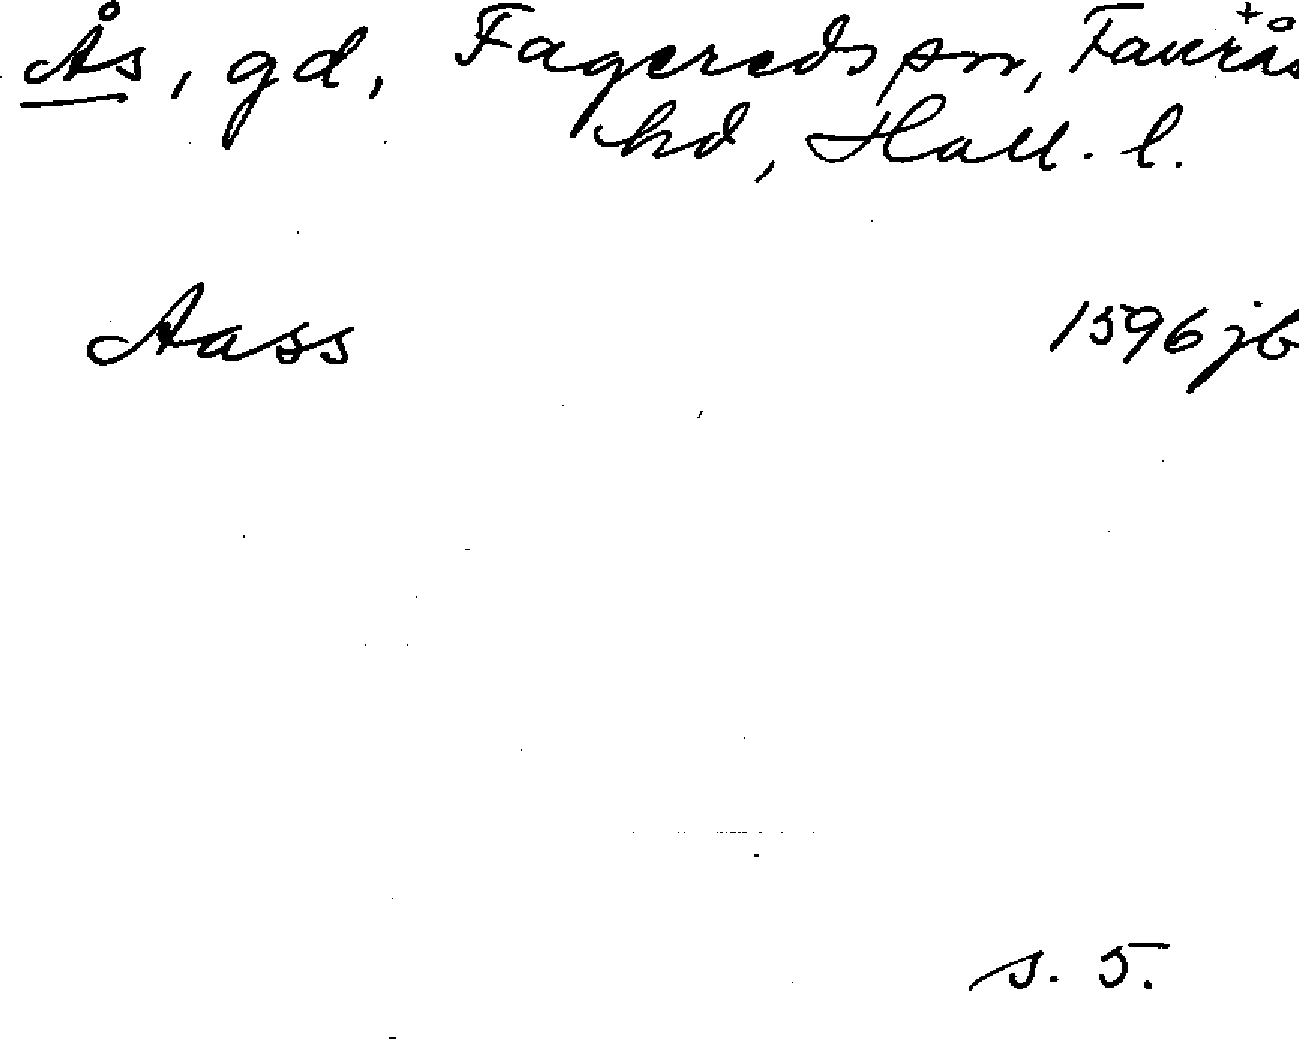 Ås, gd, Fagereds sn, Faurås
hd, Hall. l.
Aass 1596 jb
s. 5.